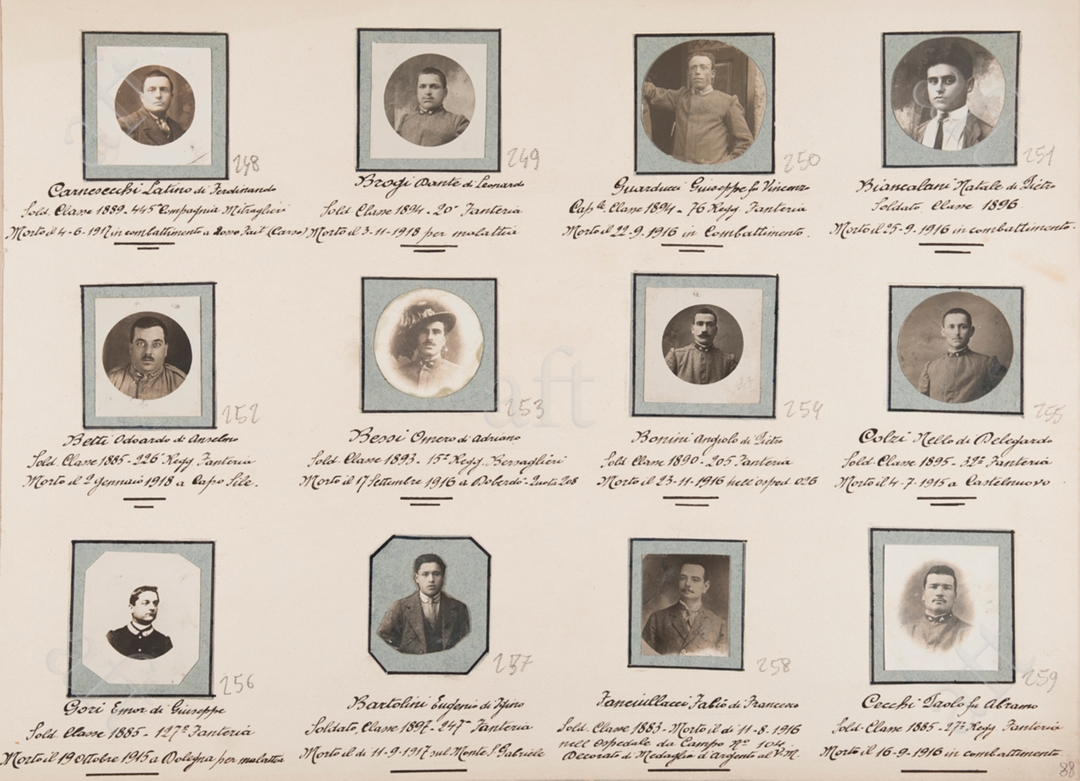 248
Carnesecchi Latino di Ferdinando
Sold. Classe 1889 - 445ª Compagnia Mitraglieri
Morto il 4-6-1917 in combattimento a Dosso Fait (Carso)
249
Brogi Dante di Leonardo
Sold. Classe 1894 - 20° Fanteria
Morto il 3-11-1918 per malattia
250
Guarducci Giuseppe fu Vincenzo
Cap.le Classe 1894 - 76 Regg Fanteria
Morto il 22-9-1916 in Combattimento.
251
Biancalani Natale di Pietro
Soldato, Classe 1896
Morto il 25-9-1916 in combattimento.
252
Betti Odoardo di Anselmo
Sold. Classe 1885 - 226° Regg Fanteria
Morto il 2 gennaio 1918 a Capo Sile.
253
Bessi Omero di Adriano
Sold. Classe 1893. 15° Regg. Bersaglieri
Morto il 17 Settembre 1916 a Doberdò - Quota 208
254
Bonini Angiolo di Pietro
Sold. Classe 1890 - 205 Fanteria
Morto il 23-11-1916 nell'osped. 026
255
Colzi Nello di Delegardo
Sold. Classe 1895 - 32° Fanteria
Morto il 4-7-1915 a Castelnuovo
aft
256
Gori Emor di Giuseppe
Sold. Classe 1885 - 127° Fanteria
Morto il 19 Ottobre 1915 a Bologna per malattia
257
Bartolini Eugenio di Igino
Soldato, Classe 1897 - 247° Fanteria
Morto il dì 11-9-1917 sul Monte S. Gabriele
258
Fanciullacci Fabio di Francesco
Sold. Classe 1883 - Morto il dì 11-8-1916
nell'Ospedale da Campo N° 104
Decorato di Medaglia d'argento al V.M.
259
Cecchi Paolo fu Abramo
Sold. Classe 1885 - 27° Regg Fanteria
Morto il 16-9-1916 in combattimento
88